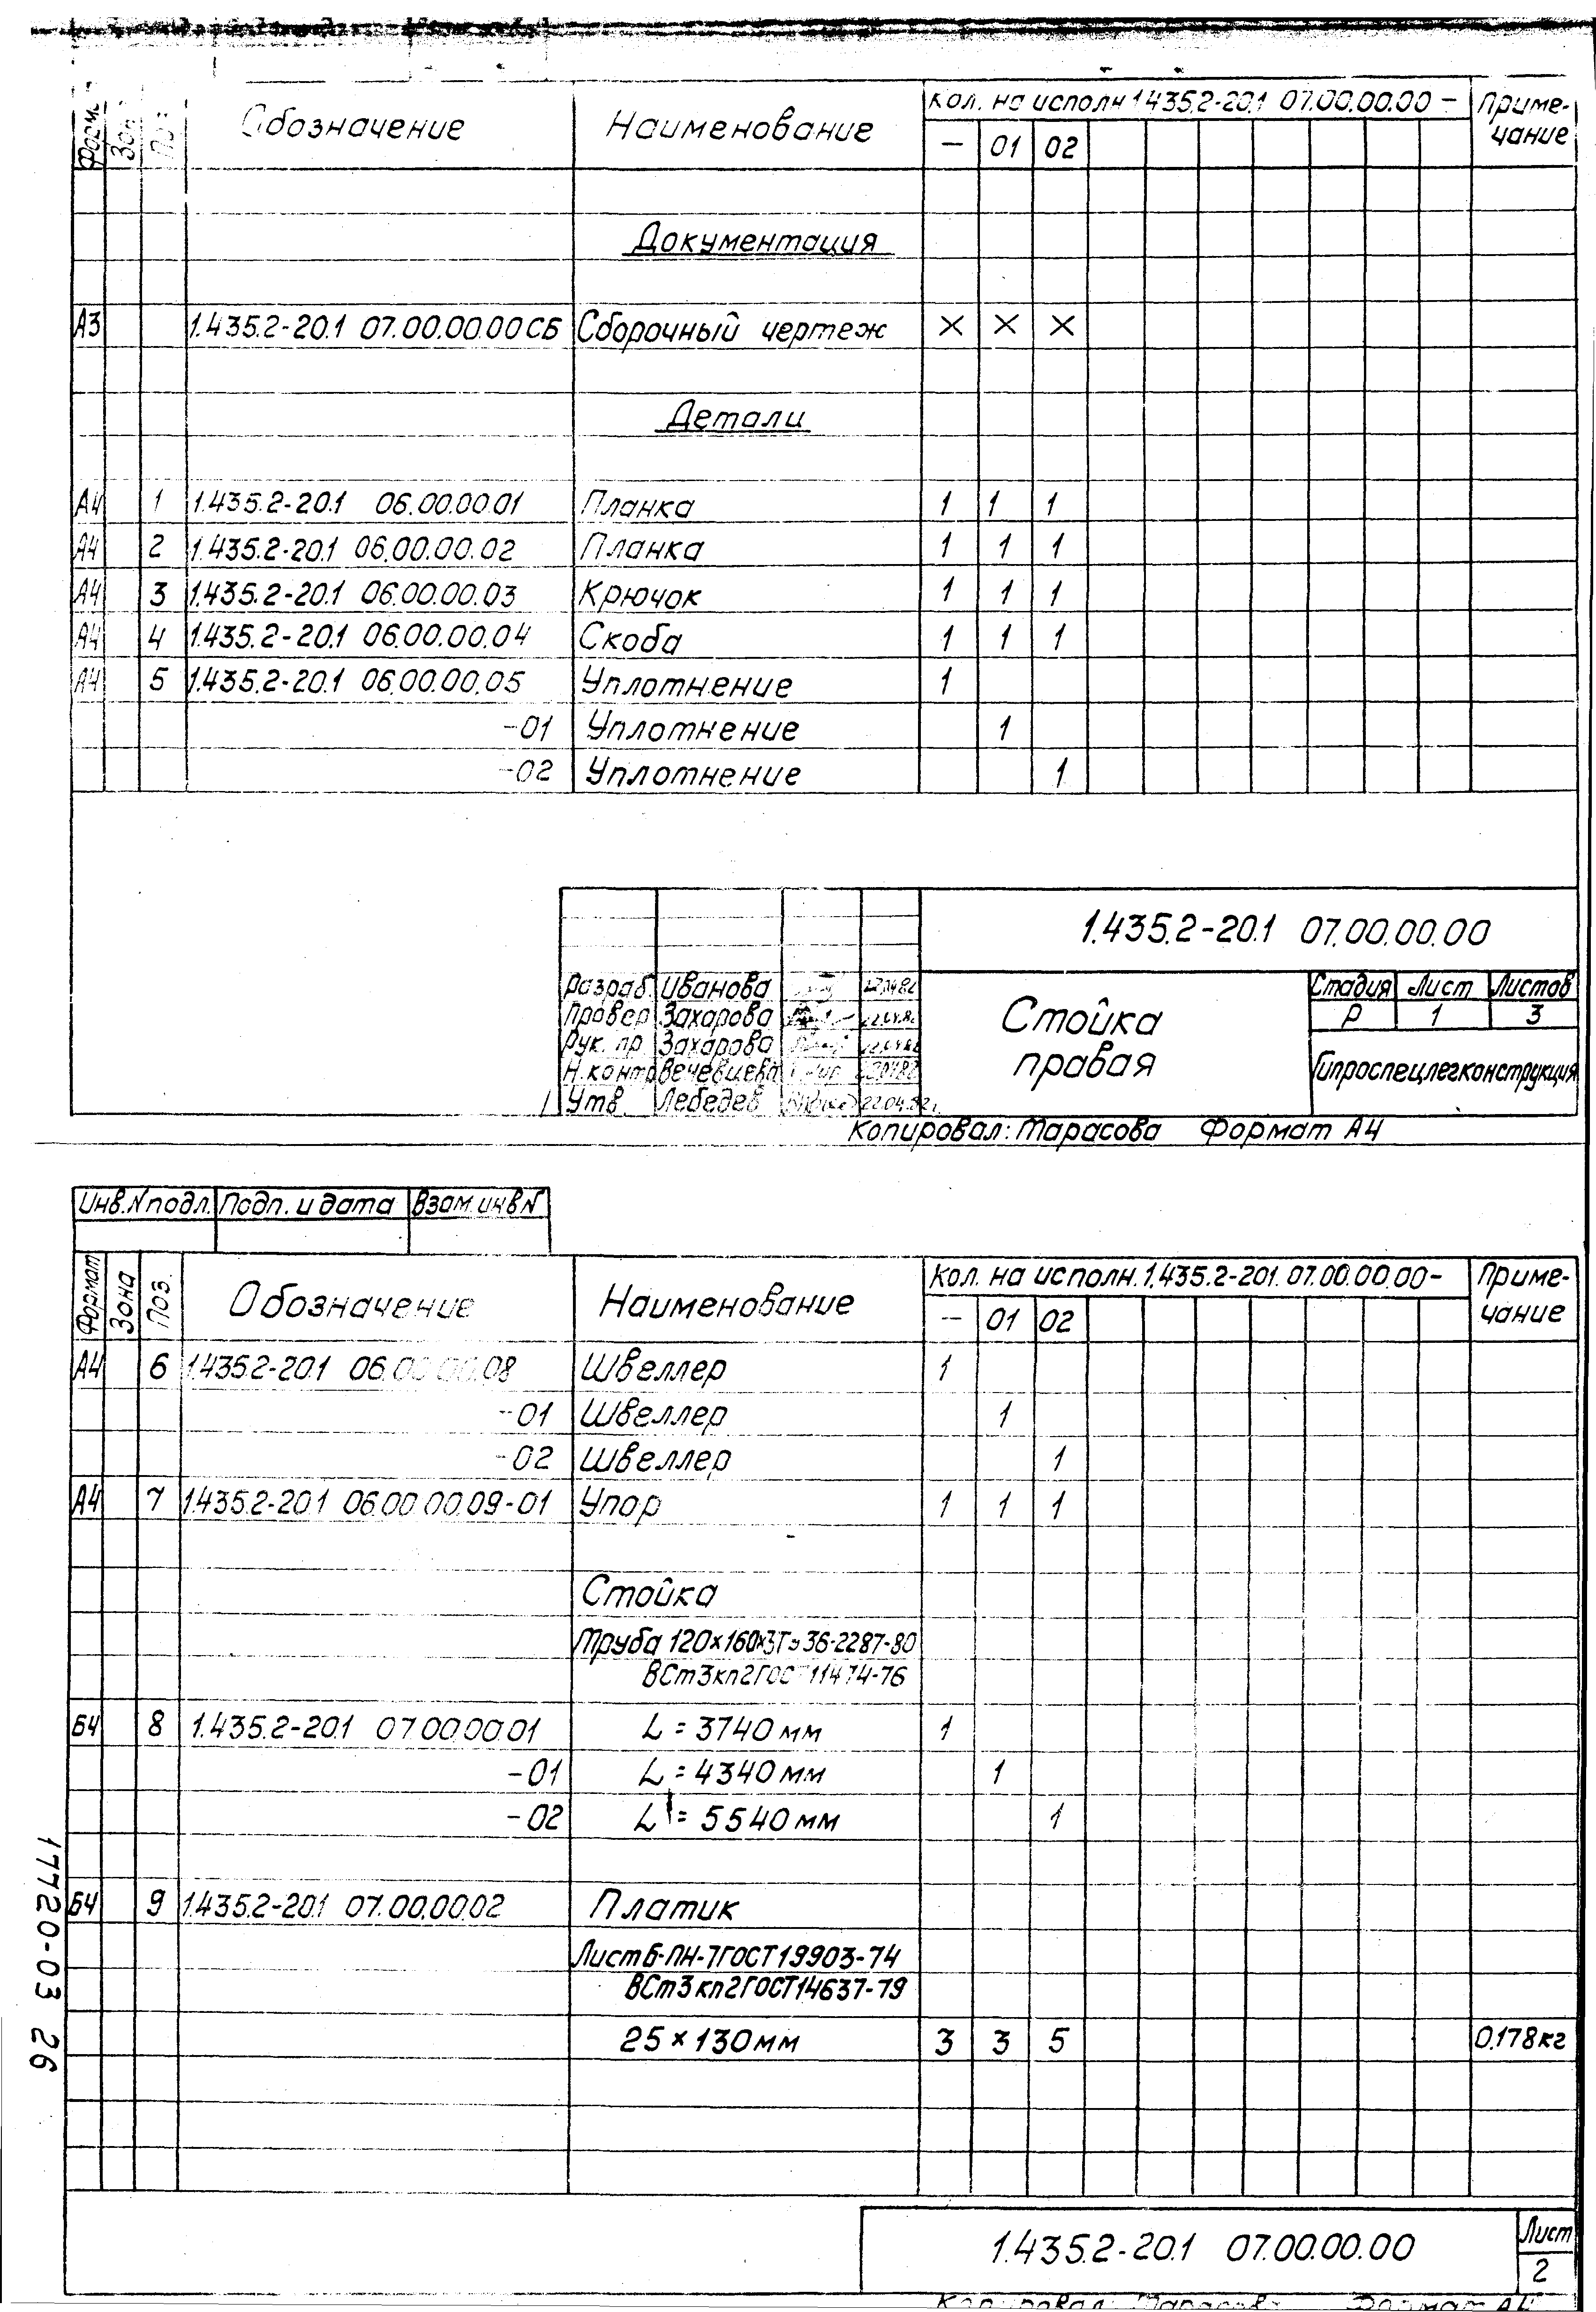 Обозначение Наименование Кол. на исполн 1.435.2-20.1 07.00.00.00 - Приме-
чание
— 01 02
Документация
А3 1.435.2-20.1 07.00.00.00 СБ Сборочный чертеж × × ×
Детали
А4 1 1.435.2-20.1 06.00.00.01 Планка 1 1 1
А4 2 1.435.2-20.1 06.00.00.02 Планка 1 1 1
А4 3 1.435.2-20.1 06.00.00.03 Крючок 1 1 1
А4 4 1.435.2-20.1 06.00.00.04 Скоба 1 1 1
А4 5 1.435.2-20.1 06.00.00.05 Уплотнение 1
-01 Уплотнение 1
-02 Уплотнение 1
1.435.2-20.1 07.00.00.00
Разраб Иванова
Провер Захарова
Рук. пр. Захарова
Н. контр
Утв. Лебедев 22.04.82г.
Стойка
правая
Стадия Лист Листов
Р 1 3
Гипроспецлегконструкция
Копировал: Тарасова Формат А4
Инв.№подл. Подп. и дата Взам.инв№
Формат Зона Поз. Обозначение Наименование Кол. на исполн. 1.435.2-20.1. 07.00.00.00- Приме-
чание
— 01 02
А4 6 1.435.2-20.1 06.00.00.08 Швеллер 1
-01 Швеллер 1
-02 Швеллер 1
А4 7 1.435.2-20.1 06.00.00.09-01 Упор 1 1 1
Стойка
Труба 120×160×3 ТУ36-2287-80
ВСт3кп2ГОСТ11474-76
БЧ 8 1.435.2-20.1 07.00.00.01 L = 3740 мм 1
-01 L = 4340 мм 1
-02 L = 5540 мм 1
БЧ 9 1.435.2-20.1 07.00.00.02 Платик
Лист Б-ПН-7ГОСТ19903-74
ВСт3кп2ГОСТ14637-79
25×130мм 3 3 5 0.178кг
17720-03 26
1.435.2-20.1 07.00.00.00
Лист
2
Копировал: Тарасова Формат А4